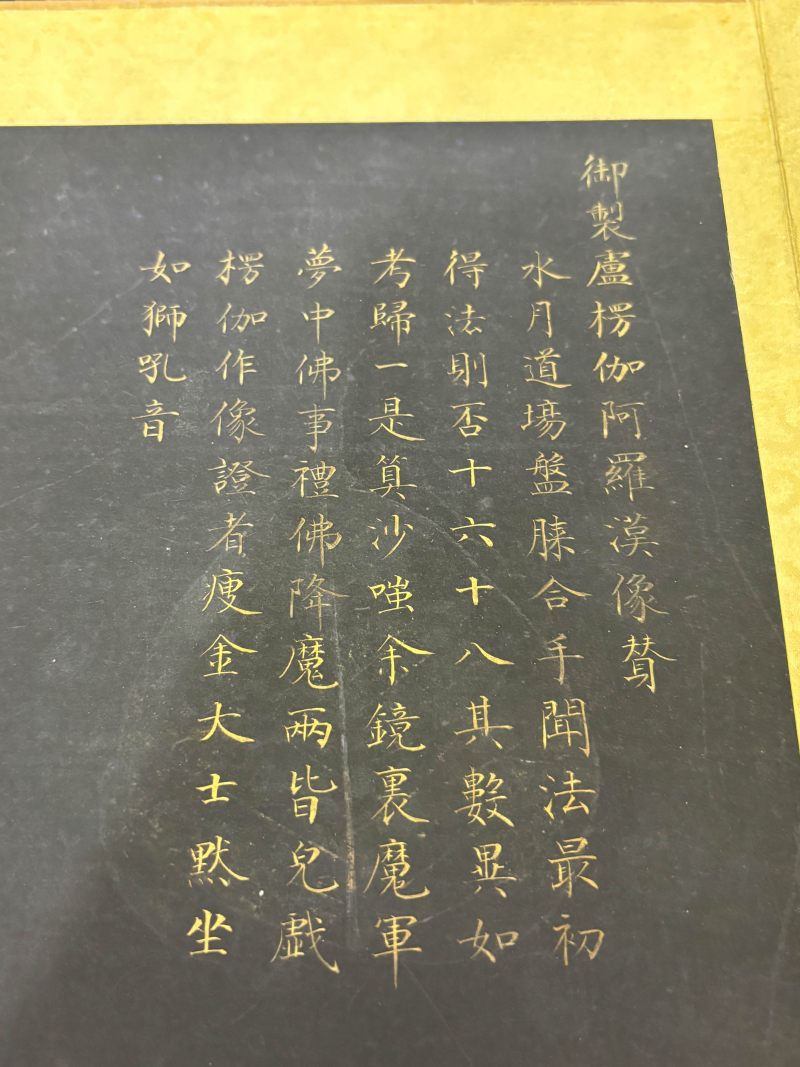 御製盧楞伽阿羅漢像贊
水月道場盤膝合手聞法最初
得法則否十六十八其數異如
考歸一是算沙嗤余鏡裏魔軍
夢中佛事禮佛降魔兩皆兒戲
楞伽作像證者瘦金大士默坐
如獅吼音